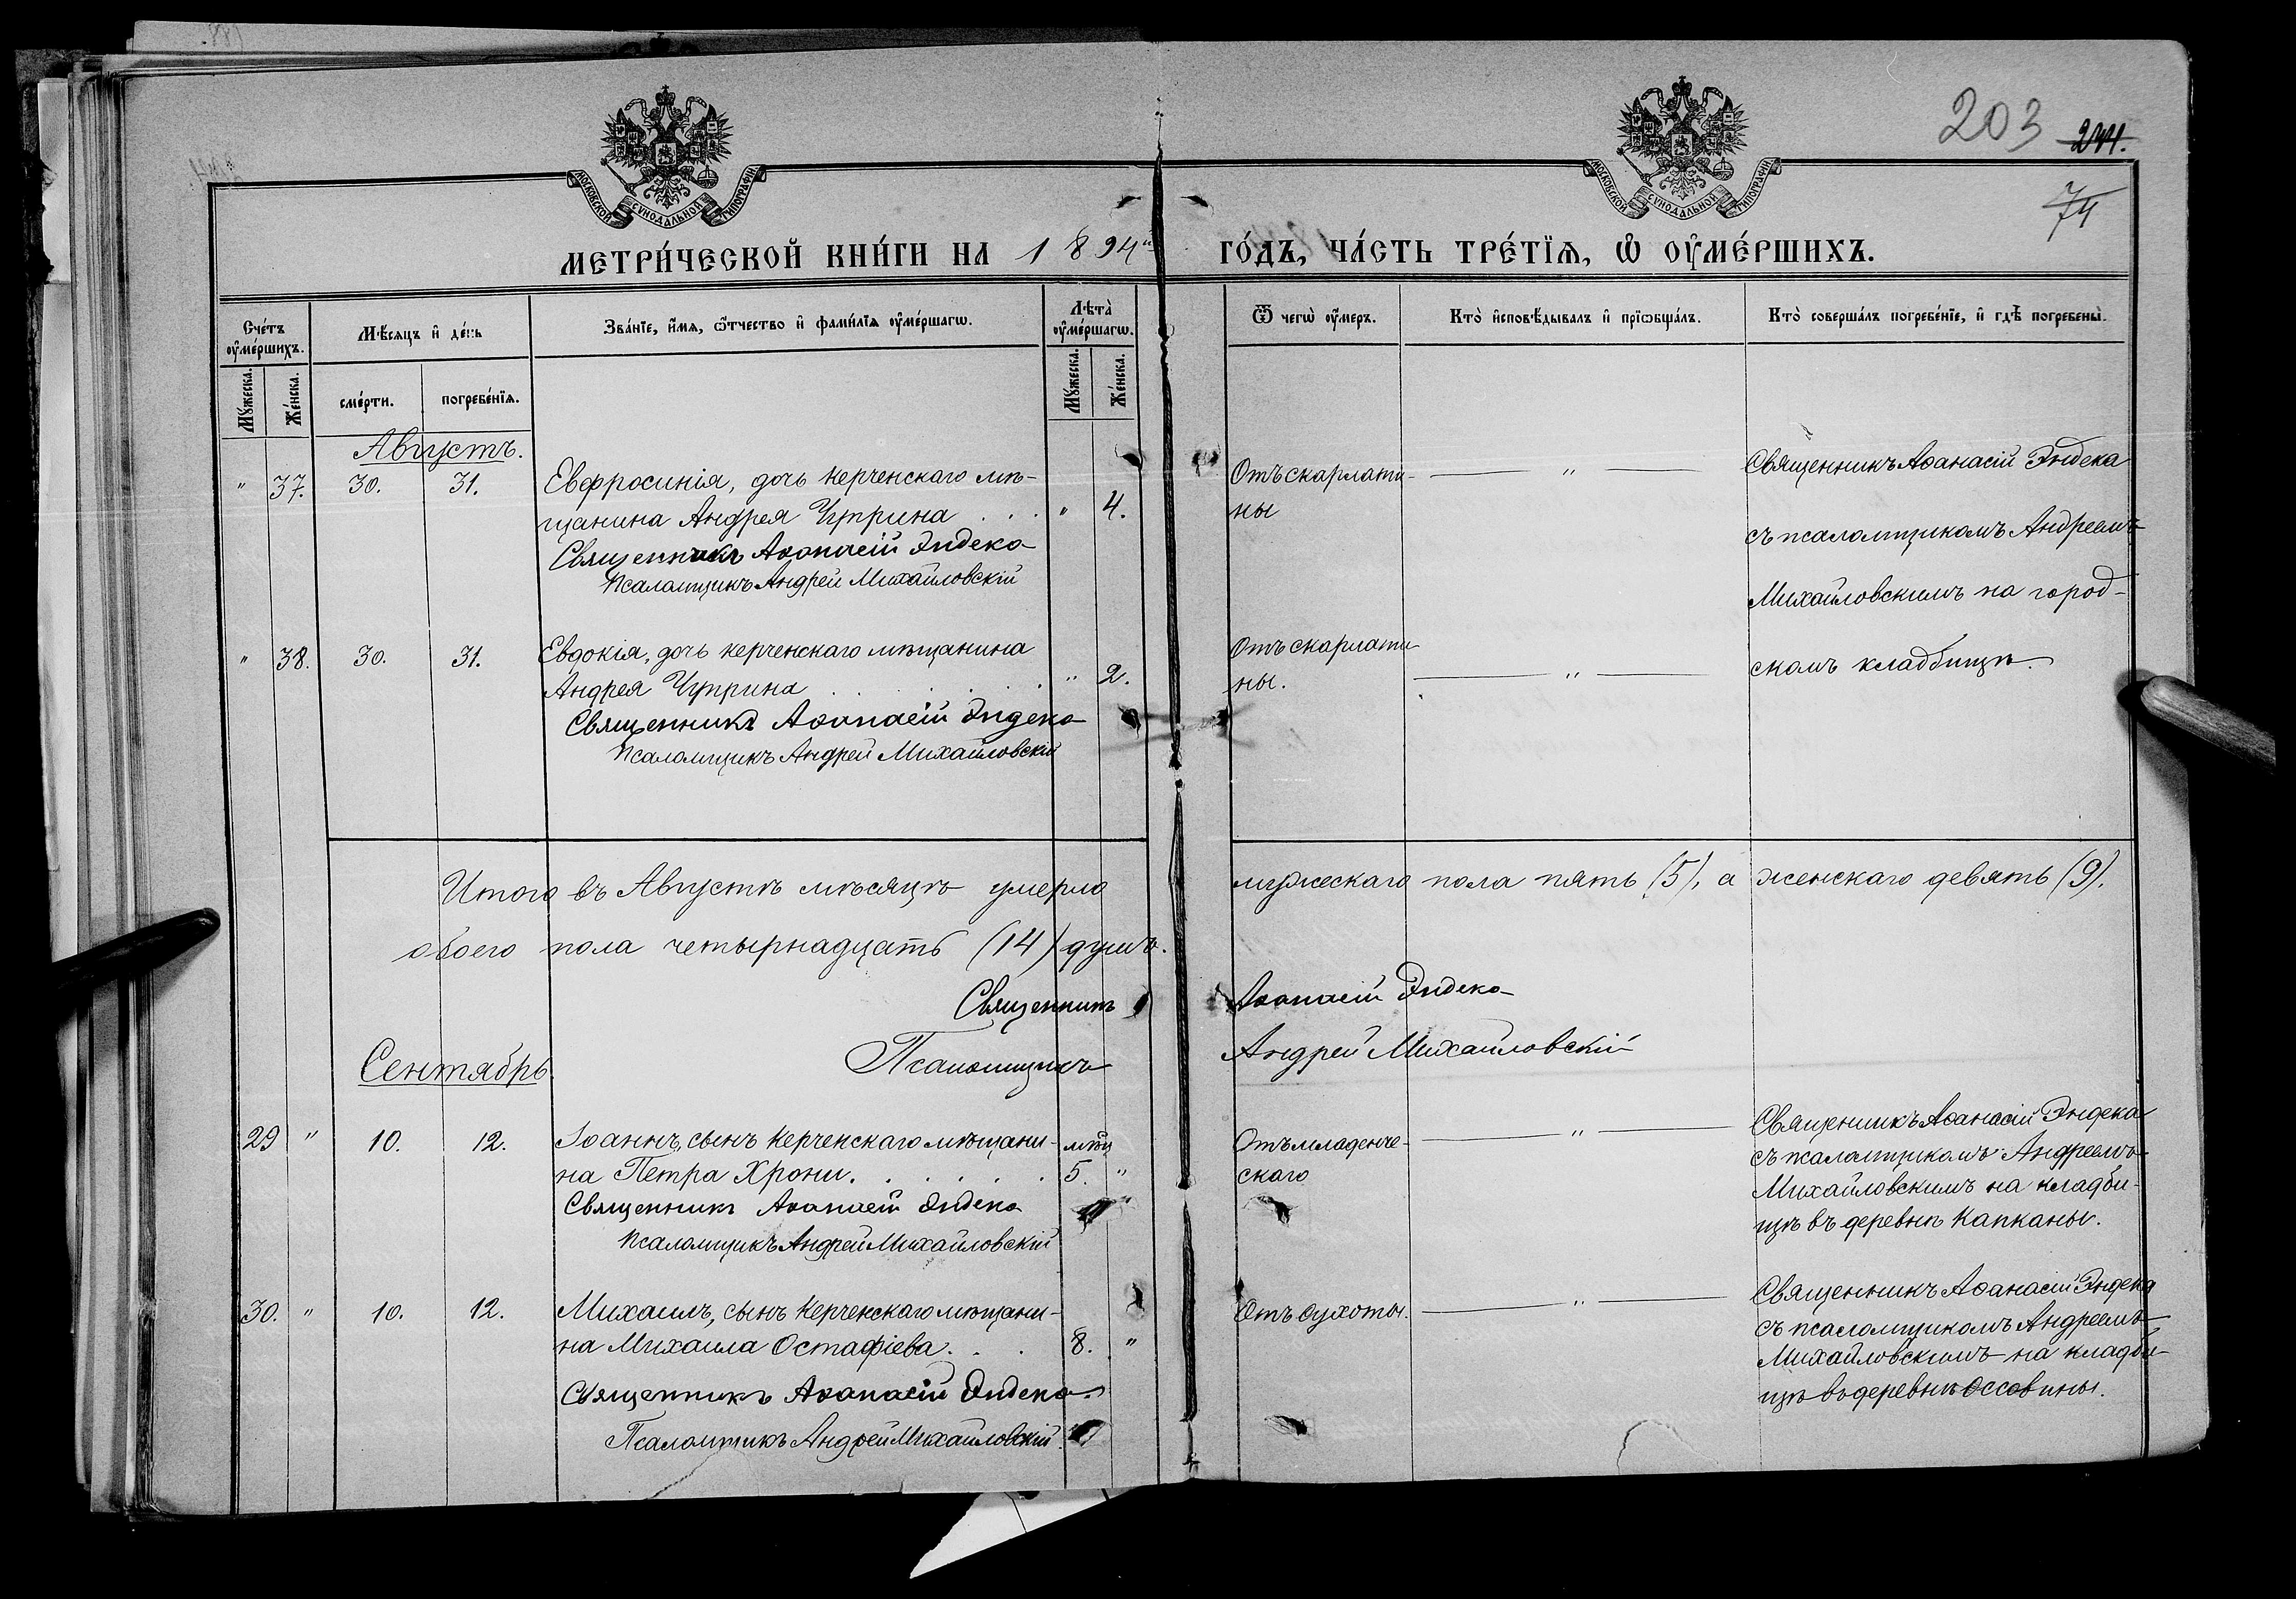 203 241.
74
МОСКОВСКОЙ СѴНОДАЛЬНОЙ ТИПОГРАФІИ
МОСКОВСКОЙ СѴНОДАЛЬНОЙ ТИПОГРАФІИ
МЕТРИ́ЧЕСКОЙ КНИ́ГИ НА 1894й ГО́ДЪ, ЧА́СТЬ ТРЕ́ТІѦ, Ѡ҆ ОУ҆МЕ́РШИХЪ.
Сче́тъ оу҆ме́ршихъ.
Мꙋжеска. Же́нска.
Мѣ́сѧцъ и҆ де́нь
сме́рти. погребе́нїѧ.
Зва́нїе, и҆́мѧ, ѻ҆́тчество и҆ фами́лїѧ оу҆ме́ршагѡ.
Лѣта̀ оу҆ме́ршагѡ.
Мꙋжеска. Же́нска.
Ѿ чегѡ̀ оу҆́меръ.
Кто̀ и҆сповѣ́дывалъ и҆ прїѡбща́лъ.
Кто̀ соверша́лъ погребе́нїе, и҆ гдѣ̀ погребены̀.
Августъ.
" 37. 30. 31. Евфросинія, дочь керченскаго мѣ-
щанина Андрея Чуприна . . . " 4.
Священникъ Аѳанасій Эндека
Псаломщикъ Андрей Михайловскій
Отъ скарлати-
ны
— " —
Священникъ Аѳанасій Эндека
съ псаломщикомъ Андреемъ
Михайловскимъ на город-
скомъ кладбищѣ.
" 38. 30. 31. Евдокія, дочь керченскаго мѣщанина
Андрея Чуприна . . . . . . " 2.
Священникъ Аѳанасій Эндека
Псаломщикъ Андрей Михайловскій
Отъ скарлати-
ны.
— " —
Итого въ Августѣ мѣсяцѣ умерло мужескаго пола пять (5), а женскаго девять (9).
обоего пола четырнадцать (14) душъ.
Священникъ Аѳанасій Эндека
Псаломщикъ Андрей Михайловскій
Сентябрь.
29 " 10. 12. Іоаннъ, сынъ Керченскаго мѣщани- мѣц
на Петра Хрони. . . . . . 5. "
Священникъ Аѳанасій Эндека
Псаломщикъ Андрей Михайловскій
Отъ младенче-
скаго
— " —
Священникъ Аѳанасій Эндека
съ псаломщикомъ Андреемъ
Михайловскимъ на кладби-
щѣ въ деревнѣ Капканы.
30. " 10. 12. Михаилъ, сынъ Керченскаго мѣщани-
на Михаила Остафіева. . . 8. "
Священникъ Аѳанасій Эндека
Псаломщикъ Андрей Михайловскій
Отъ сухоты.
— " —
Священникъ Аѳанасій Эндека
съ псаломщикомъ Андреемъ
Михайловскимъ на кладби-
щѣ въ деревнѣ Оссовины.